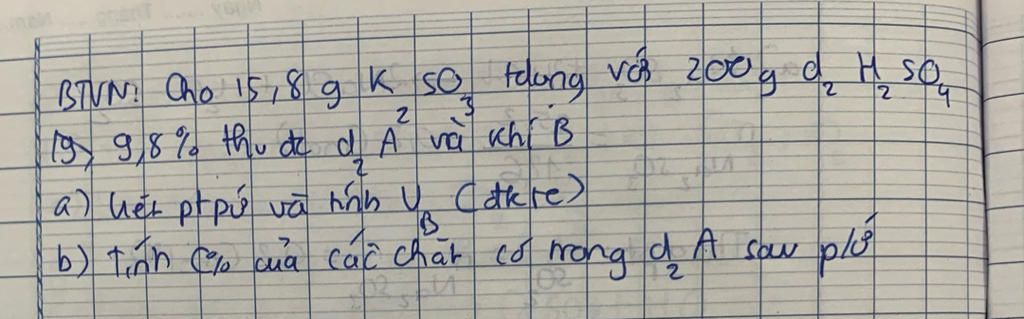 BTVN: Cho 15,8 g K₂SO₃ tdụng với 200 g d₂ H₂SO₄
9,8% thu dc d₂ A và khí B
a) Viết ptpứ và tính V_B (đktc)
b) tính C% của các chất có trong d₂ A sau pứ